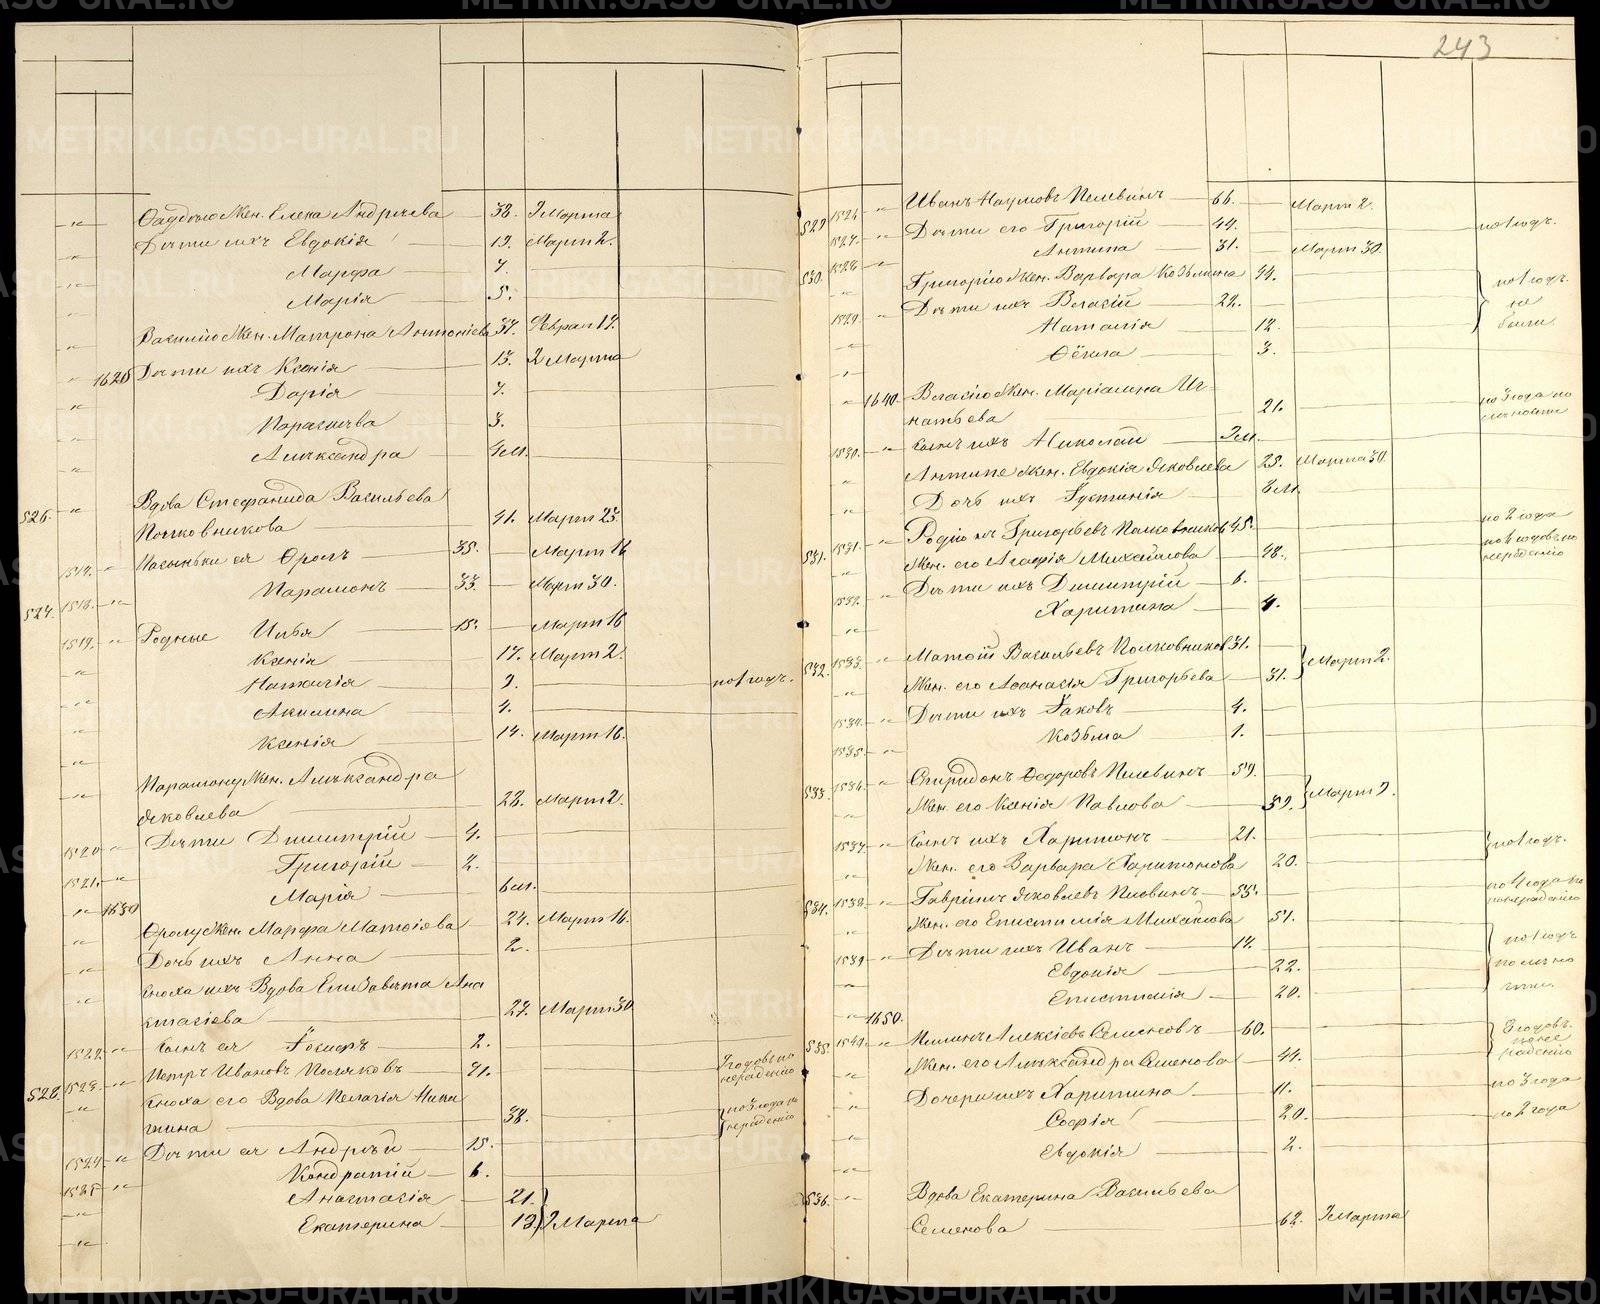 243
Фаддею Жен. Елена Андреева 38. 9 Марта
Дети ихъ Евдокія 19. Март 2.
Марфа 7.
Марія 5.
Василію Жен. Матрона Антоніева 37. Феврал 17.
1620 Дети ихъ Ксенія 13. 2 Марта
Дарія 7.
Парасшева 3.
Александра 4 м.
526. Вдова Стефанида Васильева
Полковникова 41. Март 23.
1517. Пасынки ея Фролъ 35. Март 16
527. 1518. Парамонъ 33. Март 30.
1519. Родные Илья 15. Март 16
Ксенія 17. Март 2.
Наталія 9. по 1 годъ.
Акилина 4.
Ксенія 14. Март 16.
Парамону Жен. Александра
Яковлева 28. Март 2.
1520 Дети Димитрій 4.
1521. Григорій 2.
1630 Марія 6 м.
Фролу Жен. Марфа Матѳіева 24. Март 16.
Дочь ихъ Анна 2.
Сноха ихъ Вдова Елизавета Ана
стасіева 27. Март 30
1522. Сынъ ея Іосифъ 2.
528. 1523. Петръ Ивановъ Поляковъ 71. годовъ по нераденію
Сноха его Вдова Пелагія Ники
тина 38. по 3 года по нераденію
1524. Дети ея Андрей 15.
1525 Кондратій 6.
Анастасія 21.
Екатерина 19. 9 Марта
529 1526. Иванъ Наумовъ Пелевинъ 66. Март 2.
1527. Дети его Григорій 44. по 1 годъ.
1528. Антипа 31. Март 30.
530. Григорію Жен. Варвара Козьмина 44. по 1 годъ.
1529. Дети ихъ Власій 22. не
Наталія 12. были
Ѳёкла 3.
1640. Власію Жен. Маріамна Иг
натьева 21. по 3 года по
1530. Сынъ ихъ Николай 9 м.
Антипе Жен. Евдокія Яковлева 25. Марта 30.
Дочь ихъ Іустинія 8 м.
531. 1531. Родіонъ Григорьевъ Полковников 45. по 2 года
Жен. его Агафія Михайлова 48. годовъ по нераденію
1532. Дети ихъ Димитрій 6.
Харитина 4.
532. 1533. Матѳій Васильевъ Полковников 31. Март 2.
Жен. его Аѳанасія Григорьева 31.
1534. Дети ихъ Іаковъ 4.
1535. Козьма 1.
533. 1536. Спиридонъ Федоровъ Пелевинъ 59. Март 9.
Жен. его Ксенія Павлова 59.
1537. Сынъ ихъ Харитонъ 21. по 1 годъ.
Жен. его Варвара Харитонова 20.
534. 1538. Гавріилъ Яковлевъ 55. по 4 года по нераденію
Жен. его Епистимія Михайлова 51.
1539 Дети ихъ Иванъ 14. по 1 годъ
Евдокія 22.
Епистимія 20.
1650.
535. 1540. Алексіевъ Семеновъ 60. годовъ.
Жен. его Александра Семенова 44. радению
Дочери ихъ Харитина 11. по 3 года
Софія 20. по 2 года
Евдокія 2.
536. Вдова Екатерина Васильева
Семенова 62. 9 Марта